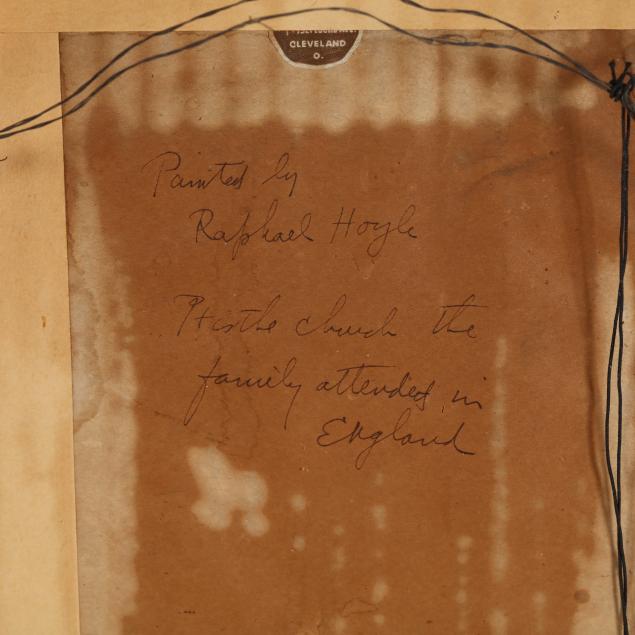 CLEVELAND
O.
Painted by
Raphael Hoyle
It is the church the
family attended in
England